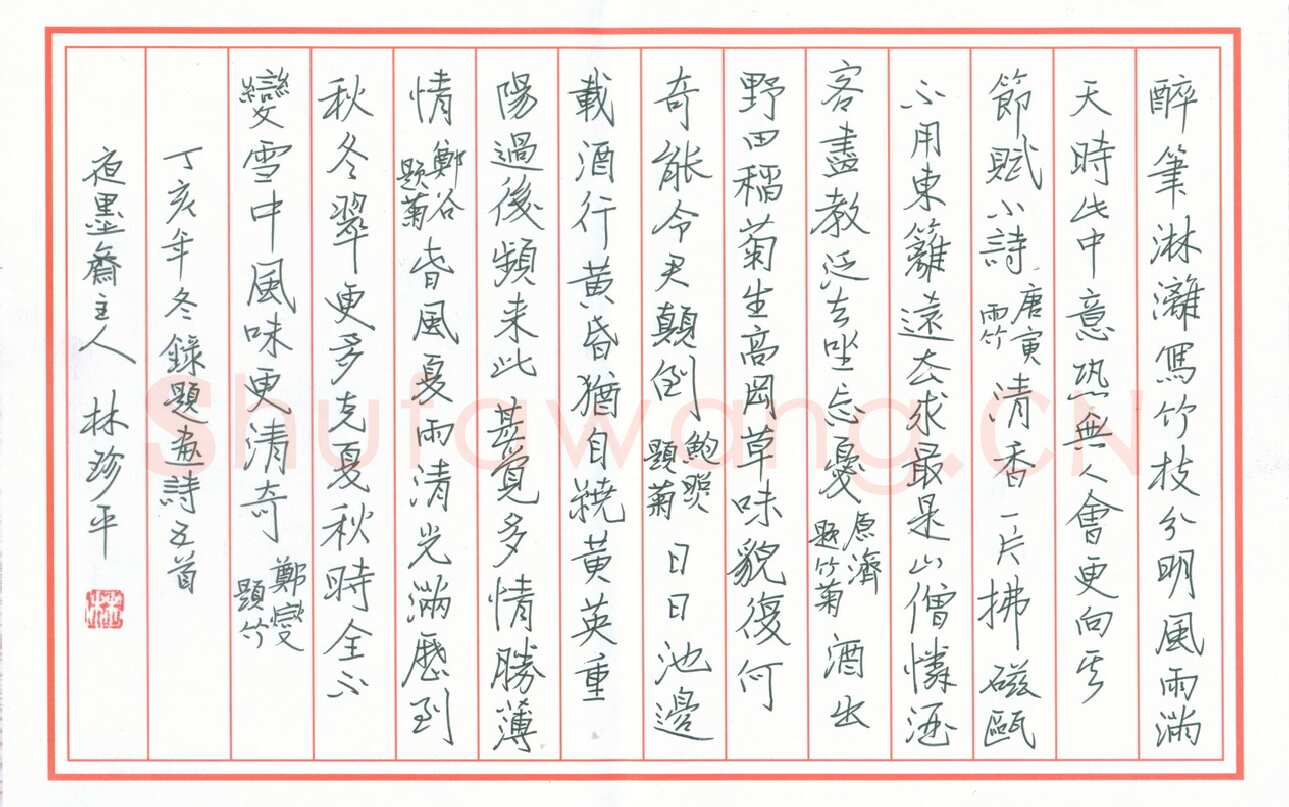 醉筆淋灕寫竹枝分明風雨滿
天時此中意恐無人會更向其
節賦小詩 唐寅雨竹 清香一片拂磁甌
不用東籬遠去求最是山僧憐酒
客盡教泛去坐忘憂 原濟題竹菊 酒出
野田稻菊生高岡草味貌復何
奇能令君顛倒 鮑照題菊 日日池邊
載酒行黃昏猶自繞黃英重
陽過後頻來此甚覺多情勝薄
情 鄭谷題菊 春風夏雨清光滿歷到
秋冬翠更多克夏秋時全不
變雪中風味更清奇 鄭燮題竹
丁亥年冬錄題畫詩五首
夜墨齋主人 林珍平
林
Shufawang.CN